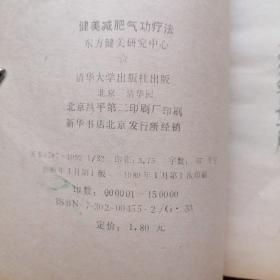 健美减肥气功疗法
东方健美研究中心
☆
清华大学出版社出版
北京 清华园
北京昌平第二印刷厂印刷
新华书店北京发行所经销
开本:787×1092 1/32 印张:3.75 字数:
1989年1月第1版 1989年1月第1次印刷
印数:000001—150000
ISBN 7-302-00455-2/G·33
定价:1.80元